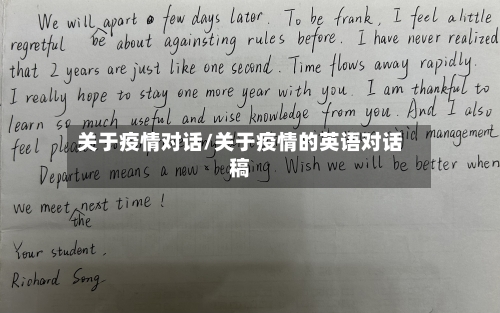 We will be apart a few days later. To be frank, I feel a little
regretful about againsting rules before. I have never realized
that 2 years are just like one second. Time flows away rapidly.
I really hope to stay one more year with you. I am thankful to
learn so much useful and wise knowledge from you. And I also
关于疫情对话/关于疫情的英语对话
稿
feel management
Departure means a new beginning. Wish we will be better when
we meet the next time!
Your student,
Richard Song